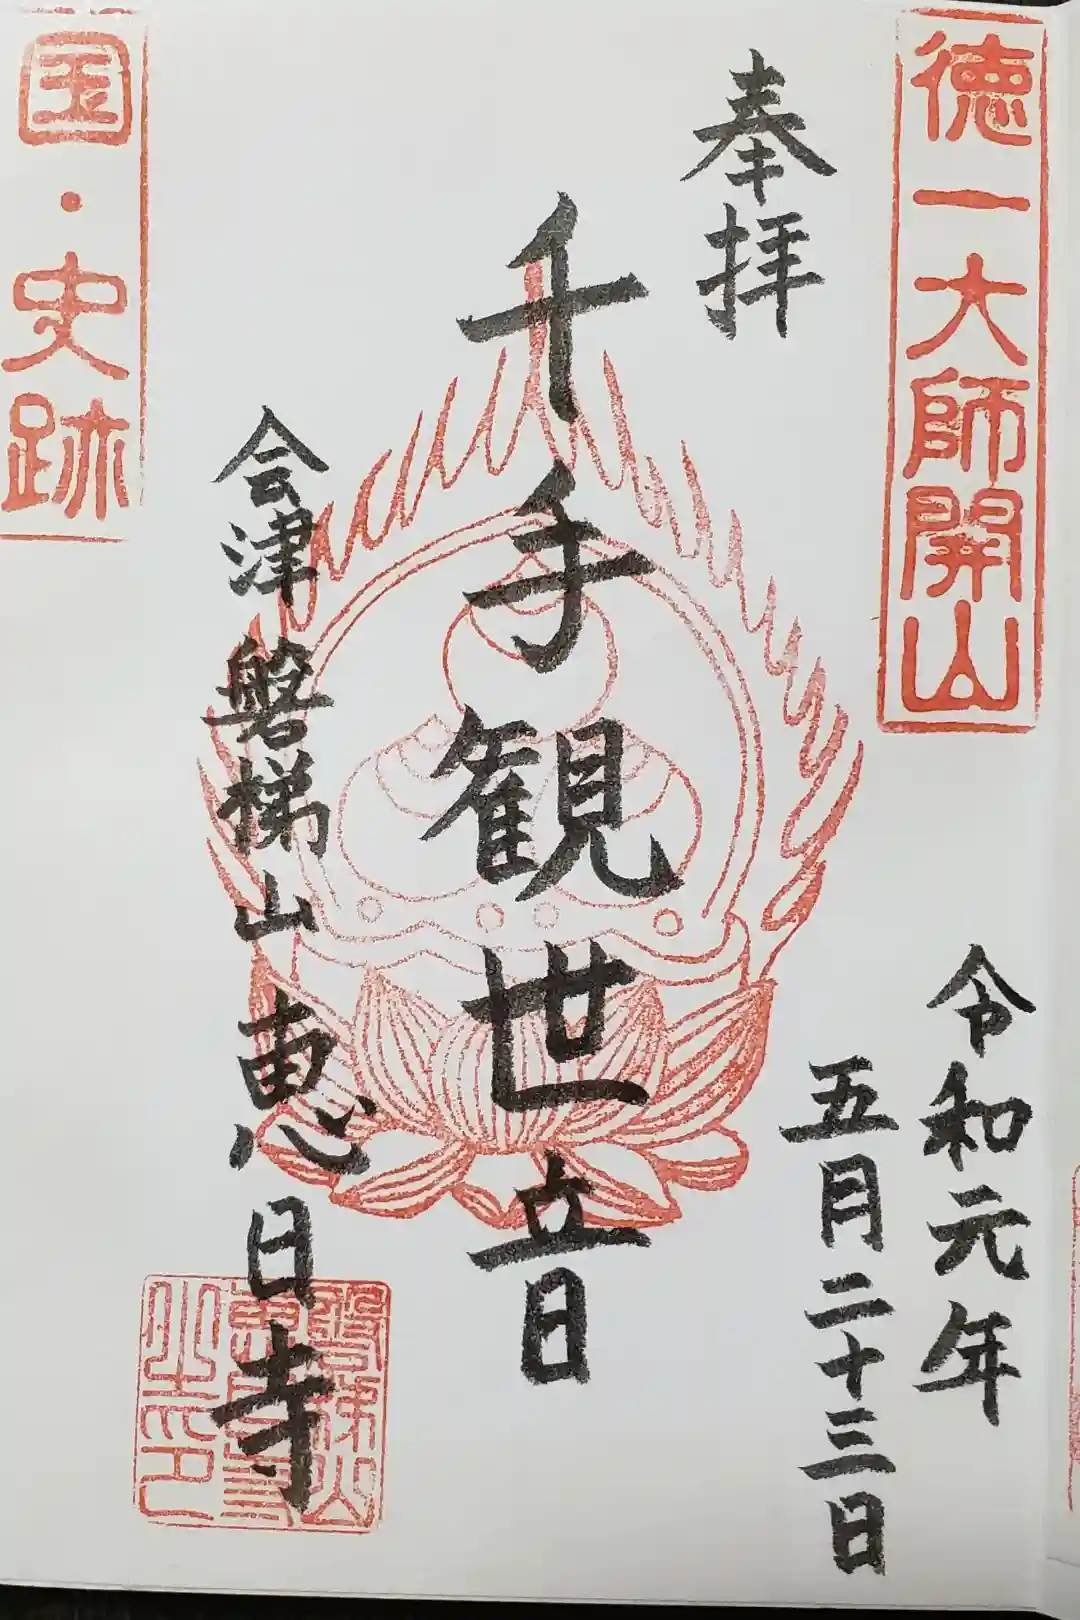 徳一大師開山
奉拝
令和元年
五月二十三日
千手観世音
会津磐梯山恵日寺
国・史跡